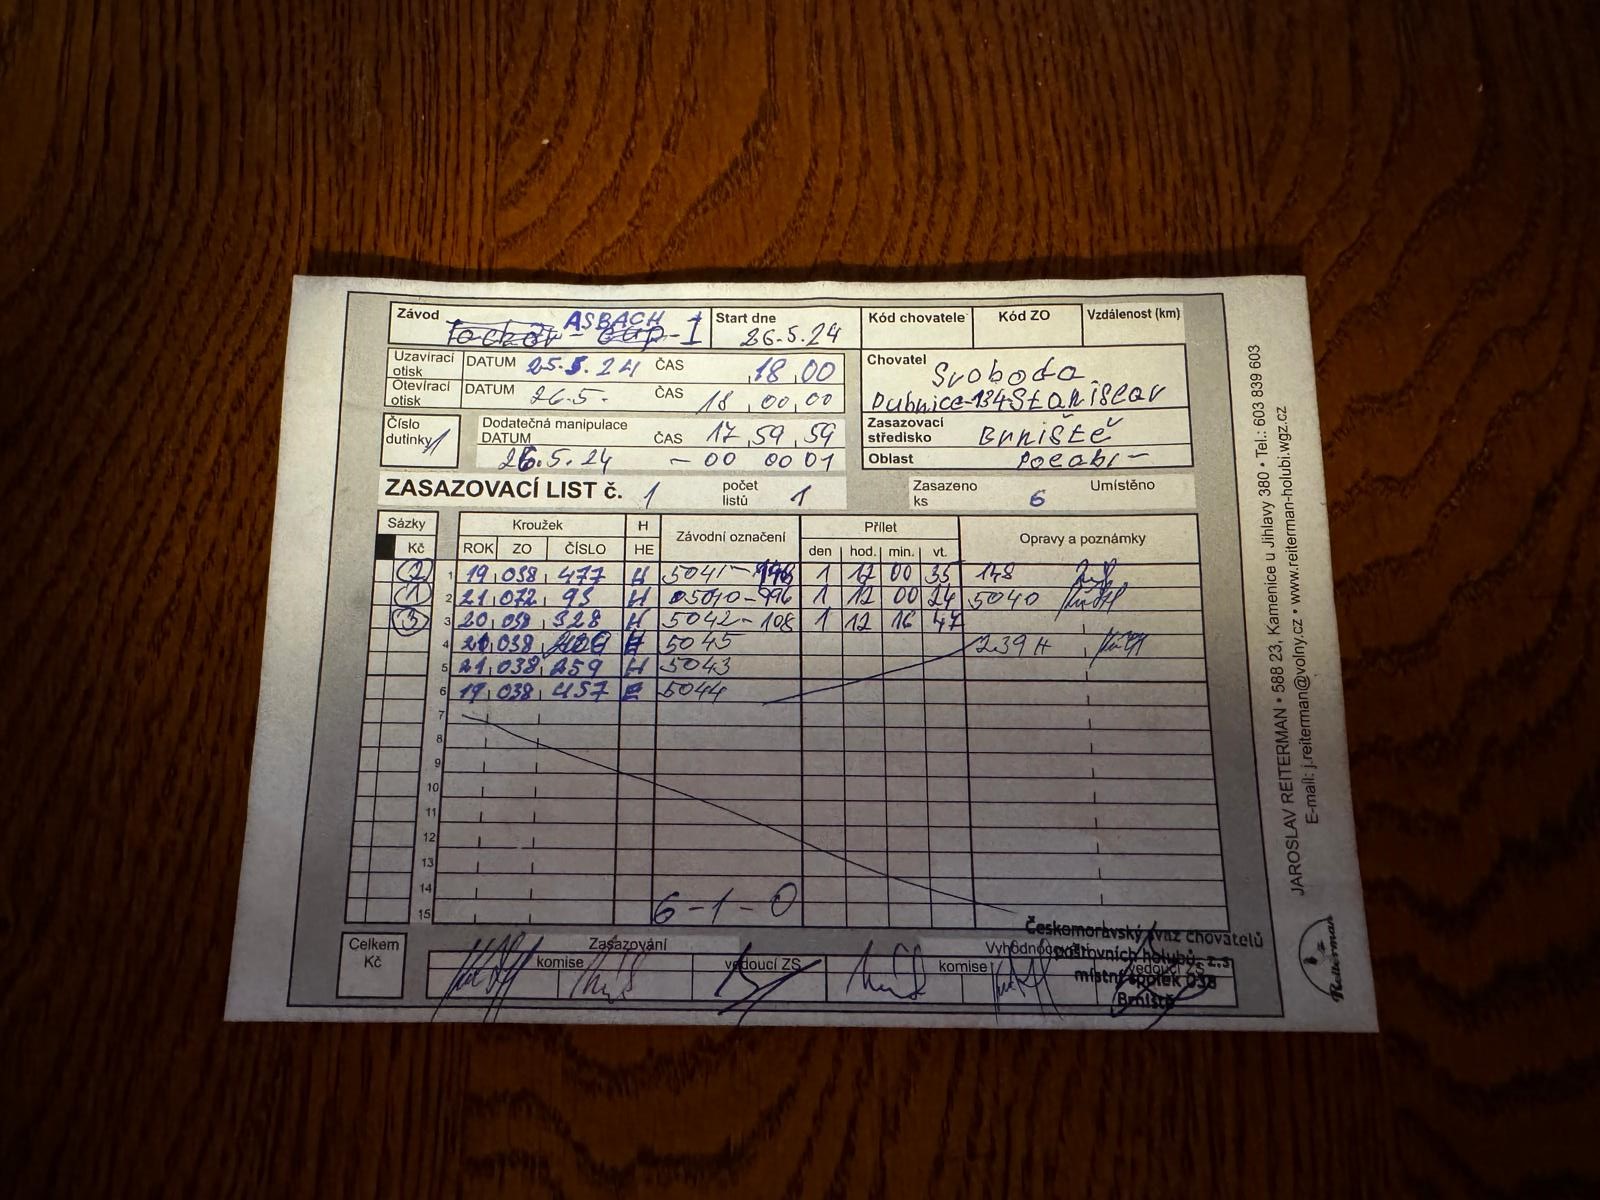 Závod ASBACH - I Start dne 26.5.24 Kód chovatele Kód ZO Vzdálenost (km)
Uzavírací otisk DATUM 25.5.24 ČAS 18,00
Otevírací otisk DATUM 26.5. ČAS 18,00,00
Chovatel Svoboda
Dubnice-134 Stanislav
Číslo dutinky 1
Dodatečná manipulace
DATUM ČAS 17,59,59
26.5.24 - 00 00 01
Zasazovací středisko Brniště
Oblast Polabí -
ZASAZOVACÍ LIST č. 1 počet listů 1 Zasazeno ks 6 Umístěno
Sázky Kroužek H Závodní označení Přílet Opravy a poznámky
Kč ROK ZO ČÍSLO HE den hod. min. vt.
2 1 19 038 477 H 5041- 1 12 00 35 148
1 2 21 072 93 H 5040-996 1 12 00 24 5040
3 3 20 038 328 H 5042-108 1 12 16 47
4 038 5045 239 H
5 21 038 259 H 5043
6 19 038 457 5044
7
8
9
10
11
12
13
14
15
6-1-0
Celkem Kč
Zasazování
komise vedoucí ZS
komise vedoucí ZS
Českomoravský svaz chovatelů
poštovních holubů, z.s
místní spolek 038
Brniště
JAROSLAV REITERMAN • 588 23, Kamenice u Jihlavy 380 • Tel.: 603 839 603
E-mail: j.reiterman@volny.cz • www.reiterman-holubi.wgz.cz
Reiterman